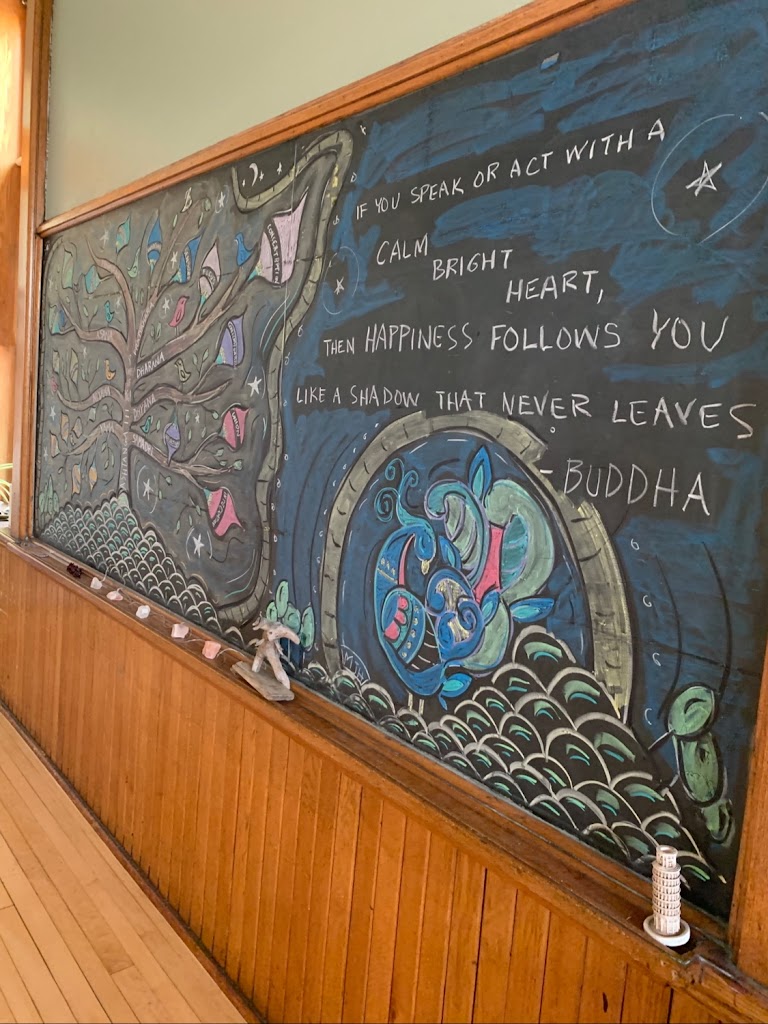 IF YOU SPEAK OR ACT WITH A
CALM
BRIGHT
HEART,
THEN HAPPINESS FOLLOWS YOU
LIKE A SHADOW THAT NEVER LEAVES
- BUDDHA
DHARANA
DHYANA